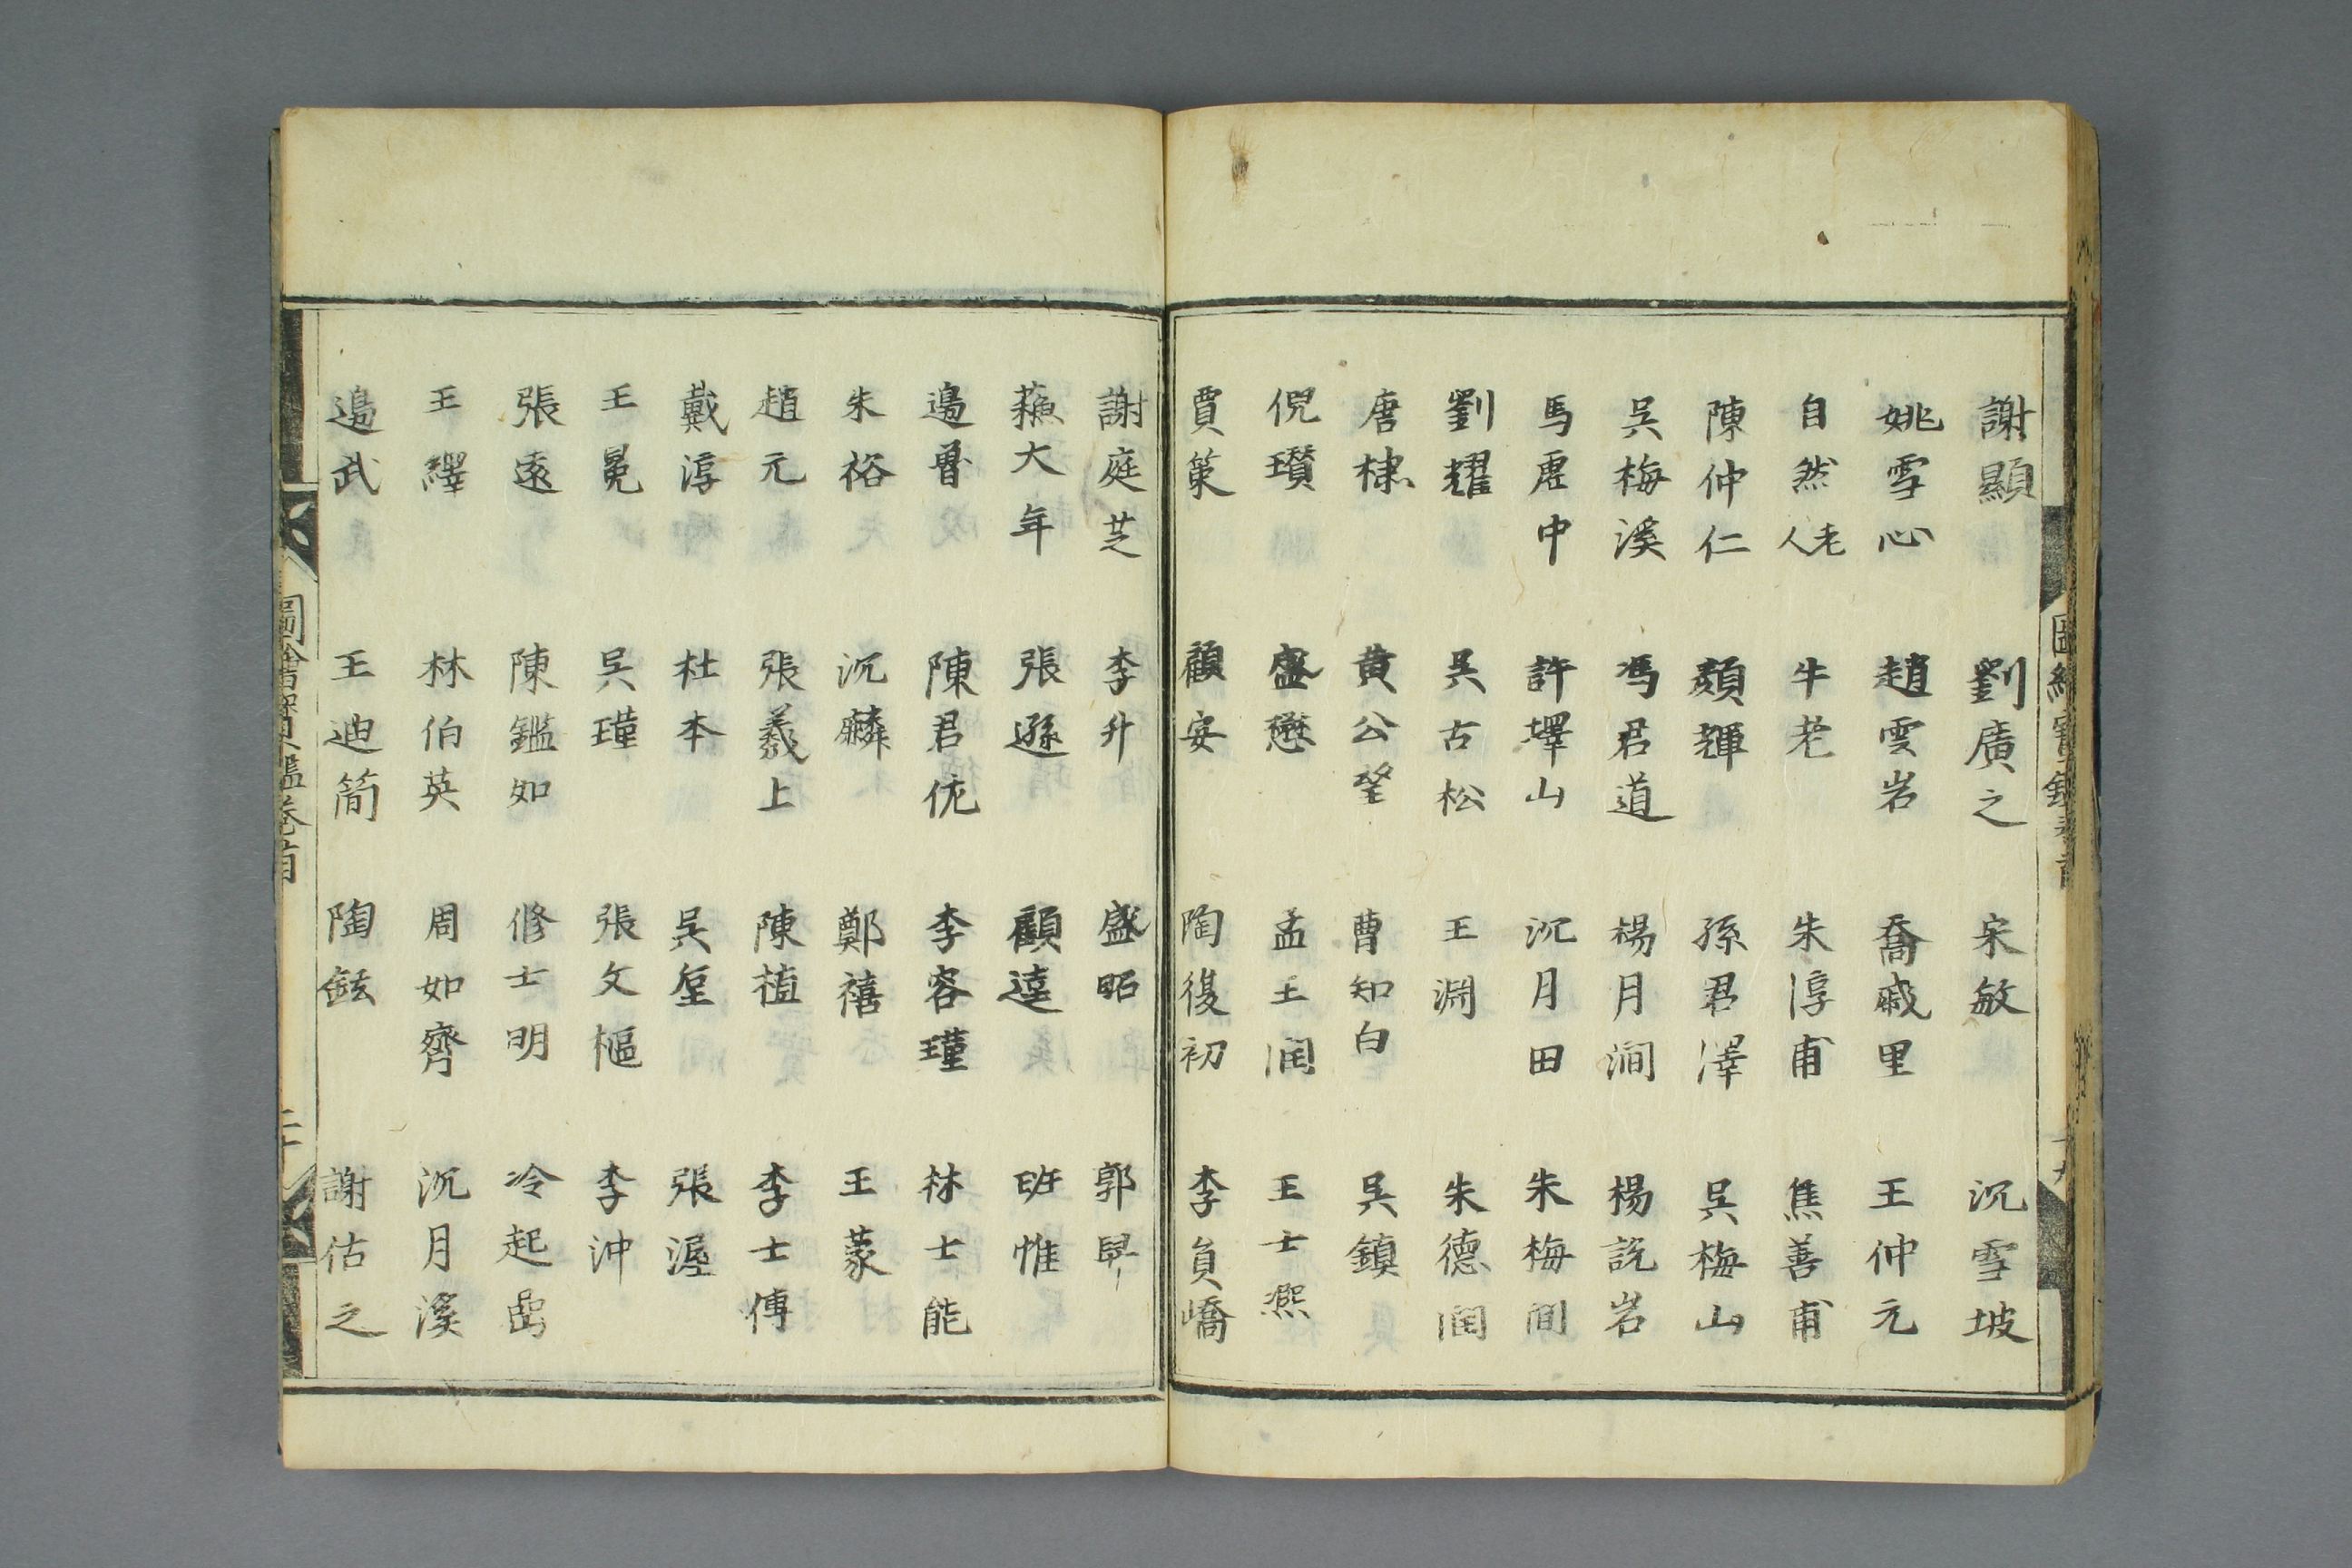 謝顯 劉廣之 宋敏 沉雪坡
姚雪心 趙雲岩 喬戚里 王仲元
自然老人 牛老 朱淳甫 焦善甫
陳仲仁 顏輝 孫君澤 吳梅山
吳梅溪 馮君道 楊月澗 楊説岩
馬唐中 許墿山 沉月田 朱梅間
劉耀 吳古松 王淵 朱德潤
唐棣 黄公望 曹知白 吳鎮
倪瓚 盛懋 孟玉潤 王士熙
賈策 顧安 陶復初 李員嶠
謝庭芝 李升 盛昭 郭畀
蘓大年 張遜 顧逵 班惟
邉魯 陳君佐 李容瑾 林士能
朱裕 沉麟 鄭禧 王蒙
趙元 張羲上 陳植 李士傅
戴淳 杜本 吳垕 張渥
王冕 吳瑾 張文樞 李沖
張遠 陳鑑如 修士明 冷起嵒
王繹 林伯英 周如齊 沉月溪
邉武 王迪簡 陶鉉 謝佑之
圖繪寶鑑卷首